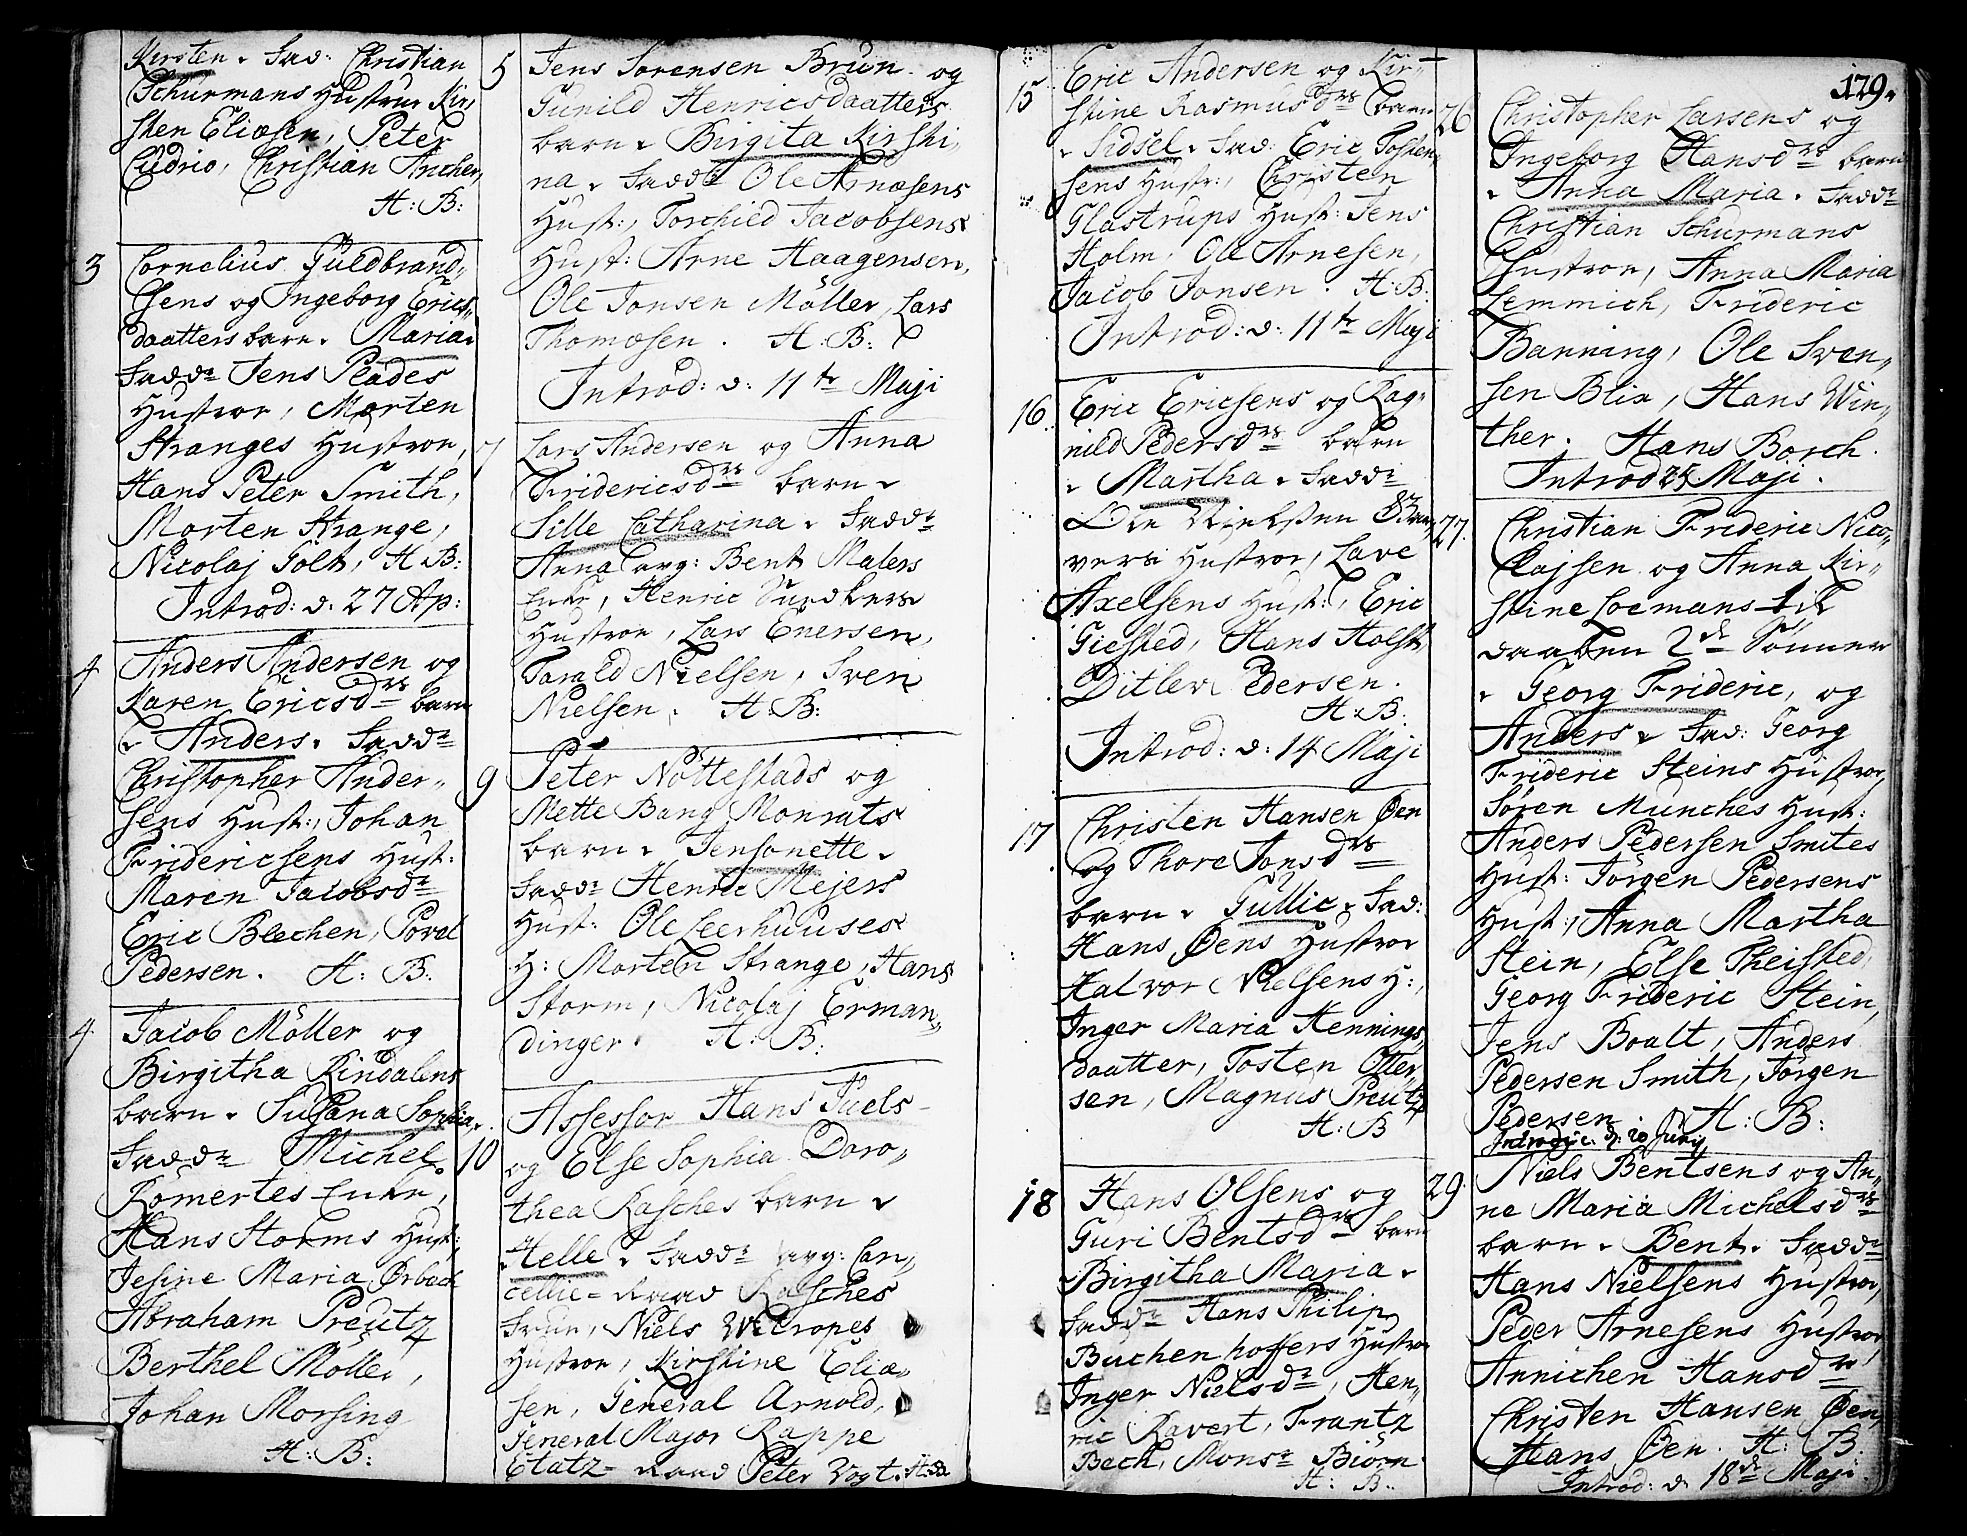 Kirsten. Fad: Christian
Schurmans Hustrue Kir-
sten Eliæsen, Peter
Cudrio, Christian Ancher,
H: B:
3
Cornelius Guldbrand-
sens og Ingeborg Erics-
daatters barn. Maria.
Fadd: Jens Plades
Hustroe, Morten
Stranges Hustroe,
Hans Peter Smith,
Morten Strange,
Nicolaj Gölt, H B:
Introd: d: 27 Ap:
4
Anders Andersen og
Karen Ericsdrs barn
Anders. Fadd:
Christopher Ander-
sens Hust:, Johan
Fridericsens Hust:
Maren Jacobsdr
Eric Blechen, Povel
Pedersen. H: B:
4
Jacob Möller og
Birgitha Rindalens
barn. Susana Sophia.
Fadd: Michel
Römertes Enke,
Hans Storms Hust:,
Jesine Maria Ørbech
Abraham Preutz
Berthel Möller,
Johan Morsing
H: B:
5
Jens Sorensen Brun og
Gunild Henricsdaatters
barn. Birgita Kirsti-
na. Fadd: Ole Arnæsens
Hust:, Torchild Jacobsens
Hust: Arne Haagensen,
Ole Jonsen Möller, Lars
Thomæsen. H: B:
Introd: d: 11te Maji
7
Lars Andersen og Anna
Fridericsdrs barn
Sille Catharina. Fadd:
Anna Bent Malers
Enke, Henric Sundbers
Hustroe, Lars Enersen,
Tarald Nielsen, Sven
Nielsen. H: B:
9
Peter Nöttestads og
Mette Bang Monrats
barn. Jensonette.
Fadd: Henric Mejers
Hust: Ole Leerhuuses
H: Morten Strange, Hans
Storm, Nicolaj Erman-
dinger. H: B:
10
Assessor Hans Juels
og Else Sophia Doro-
thea Rasches barn
Helle. Fadd: Can-
cellie-Raad Rasches
Frue, Niels Witropes
Hustroe, Kirstine Eliæ-
sen, General Arnold,
General Major Rappe
Etatz-Raad Peter Vogt. H:B:
15
Eric Andersen og Kir-
stine Rasmusdrs barn
Sidsel. Fad: Eric Tosten-
sens Hust:, Christen
Glastrups Hust: Jens
Holm, Ole Arnesen,
Jacob Jonsen. H: B:
Introd: d: 11te Maji
16.
Eric Ericsens og Rag-
nild Pedersdrs barn
Martha. Fadd:
Ole Nielsen
vers Hustroe, Lave
Axelsens Hust:, Eric
Giested, Hans Holst,
Ditlev Pedersen.
H: B:
Introd: d: 14 Maji
17
Christen Hansen Øen
og Thore Jonsdrs
barn. Gullic. Fad:
Hans Øens Hustroe
Halvor Nielsens H:,
Inger Maria Hennings-
daatter, Tosten Otter-
sen, Magnus Preutz
H: B
18
Hans Olsens og
Guri Bentsdrs barn
Birgitha Maria.
Fadd: Hans Philip
Buchenhoffers Hustroe
Inger Nielsdr, Hen-
ric Ravert, Frantz
Bech, Monsr Biörn
H: B:
129.
26
Christopher Larsens og
Ingeborg Hansdrs barn
Anna Maria. Fadd:
Christian Schurmans
Hustroe, Anna Maria
Lemmich, Frideric
Banning, Ole Sven-
sen Blix, Hans Win-
ther. Hans Borch.
Introd 25 Maji.
27.
Christian Frideric Nico-
lajsen og Anna Kir-
stine Loemans til
daaben 2de Sönner
Georg Frideric, og
Anders. Fad: Georg
Frideric Steins Hustroe,
Sören Munches Hust:
Anders Pedersen Smites
Hust: Jörgen Pedersens
Hust:, Anna Martha
Stein, Else Theisted,
Georg Frideric Stein,
Jens Boalt, Anders
Pedersen Smith, Jörgen
Pedersen. H: B:
Introduc. d: 20 Junij
29.
Niels Bentsens og An-
ne Maria Michelsdrs
barn. Bent. Fadd:
Hans Nielsens Hustroe,
Peder Arnesens Hustroe,
Annichen Hansdr
Christen Hansen Øen,
Hans Øen. H: B.
Introd: d. 18de Maji.